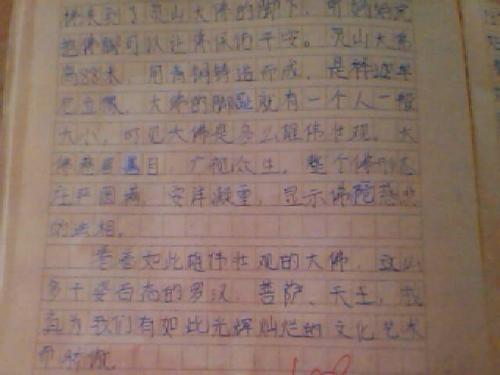 快来到了灵山大佛的脚下，可妈妈说
抱佛脚可以让佛保佑平安。灵山大佛
高88米，用青铜铸造而成，是释迦牟
尼立像，大佛的脚趾就有一个人一般
大小，可见大佛是多么雄伟壮观。大
佛慈眉善目，广视众生，整个佛形态
庄严圆满，安详凝重，显示佛陀慈悲
的法相。
看看如此雄伟壮观的大佛，这么
多千姿百态的罗汉、菩萨、天王，我
真为我们有如此光辉灿烂的文化艺术
而骄傲。